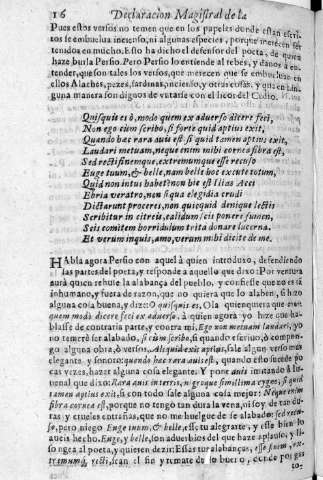 16 Declaracion Magistral de la
Pues estos versos no temen que en los papeles donde estan escri-
tos se embuelua incienso, ni algunas especies, porque merecen ser
tenidos en mucho. Esto ha dicho el defensor del poeta, de quien
haze burla Persio. Pero Persio lo entiende al rebes, y danos a en-
tender, que son tales los versos, que merecen que se embueluan en
ellos Alaches, pezes, sardinas, incienso, y otras cosas, y que en nin-
guna manera son dignos de vntarse con el licor del Cedro.
Quisquis es ò, modo quem ex aduerso dicere feci,
Non ego cùm scribo, si forte quid aptius exit,
Quando hæc rara auis est. si quid tamen aptius exit,
Laudari metuam, neque enim mihi cornea fibra est,
Sed recti finemque, extremumque esse recuso
Euge tuum, & belle, nam belle hoc excute totum,
Quid non intus habet? non hic est Ilias Acci
Ebria veratro, non siqua elegidia crudi
Dictarunt proceres, non quicquid denique lectis
Scribitur in citreis, calidum scis ponere sumen,
Scis comitem horridulum trita donare lacerna.
Et verum inquis, amo, verum mihi dicite de me.
HAbla agora Persio con aquel à quien introduxo, defendiendo
las partes del poeta, y responde a aquello que dixo: Por ventura
aurà quien rehuse la alabança del pueblo, y confiesse que no es tã
inhumano, y fuera de razon, que no quiera que lo alaben, si hizo
alguna cosa buena, y dize: O quisquis es, O la quienquiera que eres
quem modò dicere feci ex aduerso, à quien agora yo hize que ha-
blasse de contraria parte, y contra mi, Ego non metuam laudari, yo
no temerè ser alabado, si cùm scribo, si quando escriuo, ò compon-
go alguna obra, ò versos, Aliquid exit aptius, sale algun verso mas
elegante, y sonoro: quando hæc rara auis est, quando esto sucede po
cas vezes, hazer alguna cosa elegante. Y pone auis imitando à Iu-
uenal que dixo: Rara auis in terris, nigroque simillima cygno, si quid
tamen aptius exit, si con todo sale alguna cosa mejor: Neque enim
fibra cornea est, porque no tengo tan dura la vena, ni soy de tan du-
ras y crueles entrañas, que no me huelgue de ser alabado: sed recu-
so, pero niego Euge tuum, & belle, esse tu alegrate, y esse bien lo
aueis hecho. Euge, y belle, son aduerbios del que haze aplauso, y li-
songea al poeta, y quieren dezir: Essas tus alabanças, esse finem, ex-
tremumq́, recti, sean el fin y remate de lo bueno, donde por gas
to-